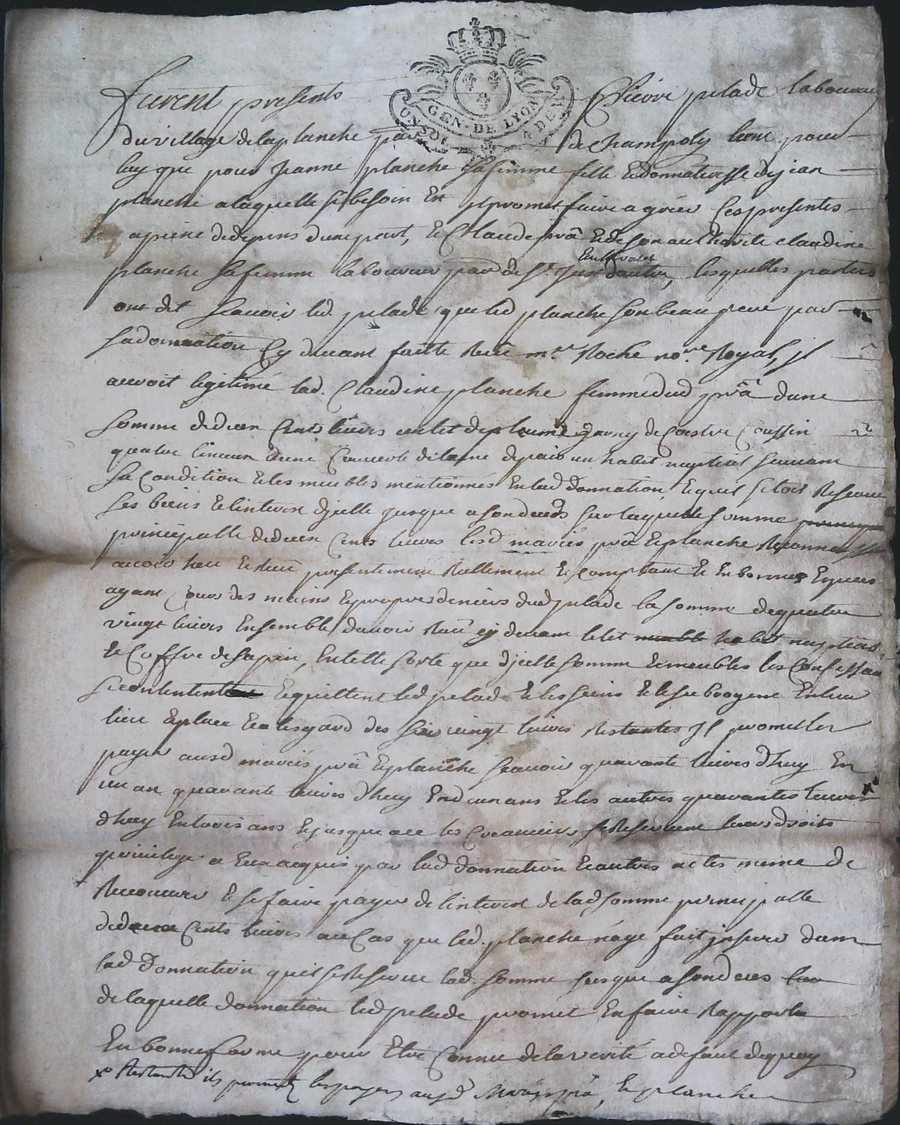 GEN. DE LYON
UN SOL
Furent presents Pierre pelade laboureur
du village de la planche par de Champoly tant pour
luy que pour Jeanne planche sa femme fille Et donnatresse de jean
planche a laquelle si besoin En Il promet faire agréer Ces presentes
a peine de depens d'une part, Et Claude prâ Et de son authorité Claudine
planche sa femme laboureur par de St. Just Enchevalet d'autre, lesquelles parties
ont dit scavoir led. pelade que led planche son beau pere par
sa donnation Cy devant faitte Receu me. Roche nore. Royal, Il
auroit legitimé lad. Claudine planche femme dud prâ d'une
somme de deux Cents livres un lit de plume garny de Coistre Coussin
quatre linceux d'une Couverte de laine de païs un habit nuptial suivant
sa Condition Et les meubles mentionnés En lad donnation Et quil s'etoit Reservé
les biens Et l'interest d'jcelle jusque a son deceds sur laquelle somme
principalle de deux Cents livres lesd mariés prâ Et planche Reconnoissent
avoir heu Et receu presentement Reellement Et comptant Et En bonnes Especes
ayant Cours des mains Et propres deniers dud pelade la somme de quatre
vingt livres Ensemble d'avoir Receu cy devant le lit habit nuptial
Et Coffre de sapin, En telle sorte que d'jcelle somme Et meubles les Confessants
se contentent Et quittent led pelade Et les siens Et le subrogent En leur
lieu Et place Et a l'esgard des six vingt livres Restantes Il promet les
payer ausd mariés prâ Et planche scavoir quarante livres d'huy En
un an quarante livres d'huy En deux ans Et les autres quarantes livres
d'huy En trois ans Et jusque a ce les Creanciers se Reservent leurs droits
privilege a Eux acquis par lad donnation Et autres actes meme de
Recouvrer Et se faire payer de l'interest de lad somme principalle
de deux Cents livres au Cas que led. planche n'aye fait inserer dans
lad Donnation quil se Reserve lad. somme jusque a son deces
de laquelle donnation led pelade promet En faire Rapporter
En bonne forme pour Etre Connu de la verité a defaut de quoy
x Restantes ils promet les payer ausd. Mariés prâ, Et planche